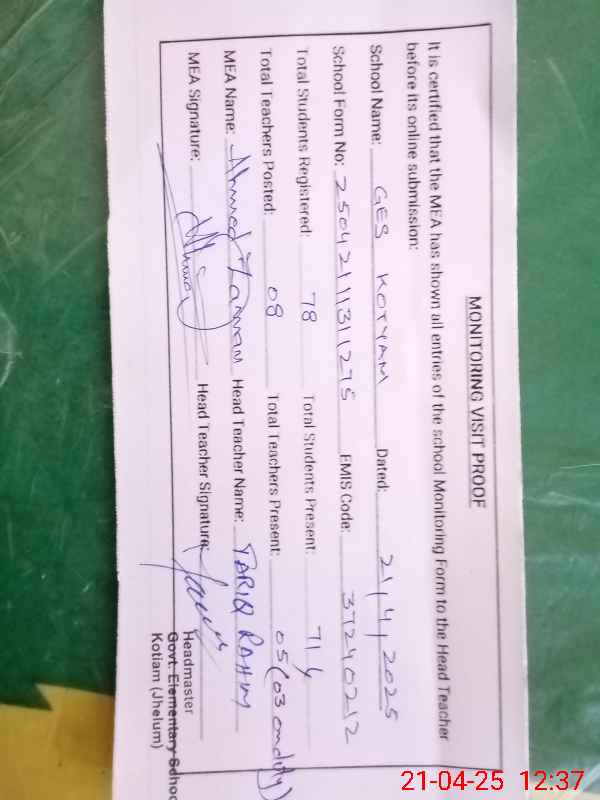 MONITORING VISIT PROOF
It is certified that the MEA has shown all entries of the school Monitoring Form to the Head Teacher
before its online submission:
School Name: GES KOTYAM Dated: 21/4/2025
School Form No: 2504211311275 EMIS Code: 37240212
Total Students Registered: 78 Total Students Present: 71
Total Teachers Posted: 08 Total Teachers Present: 05 (03 on duty)
MEA Name: Ahmed Head Teacher Name: TARIQ RAHIM
MEA Signature: Head Teacher Signature:
Headmaster
Govt. Elementary Schoo
Kotiam (Jhelum)
21-04-25 12:37